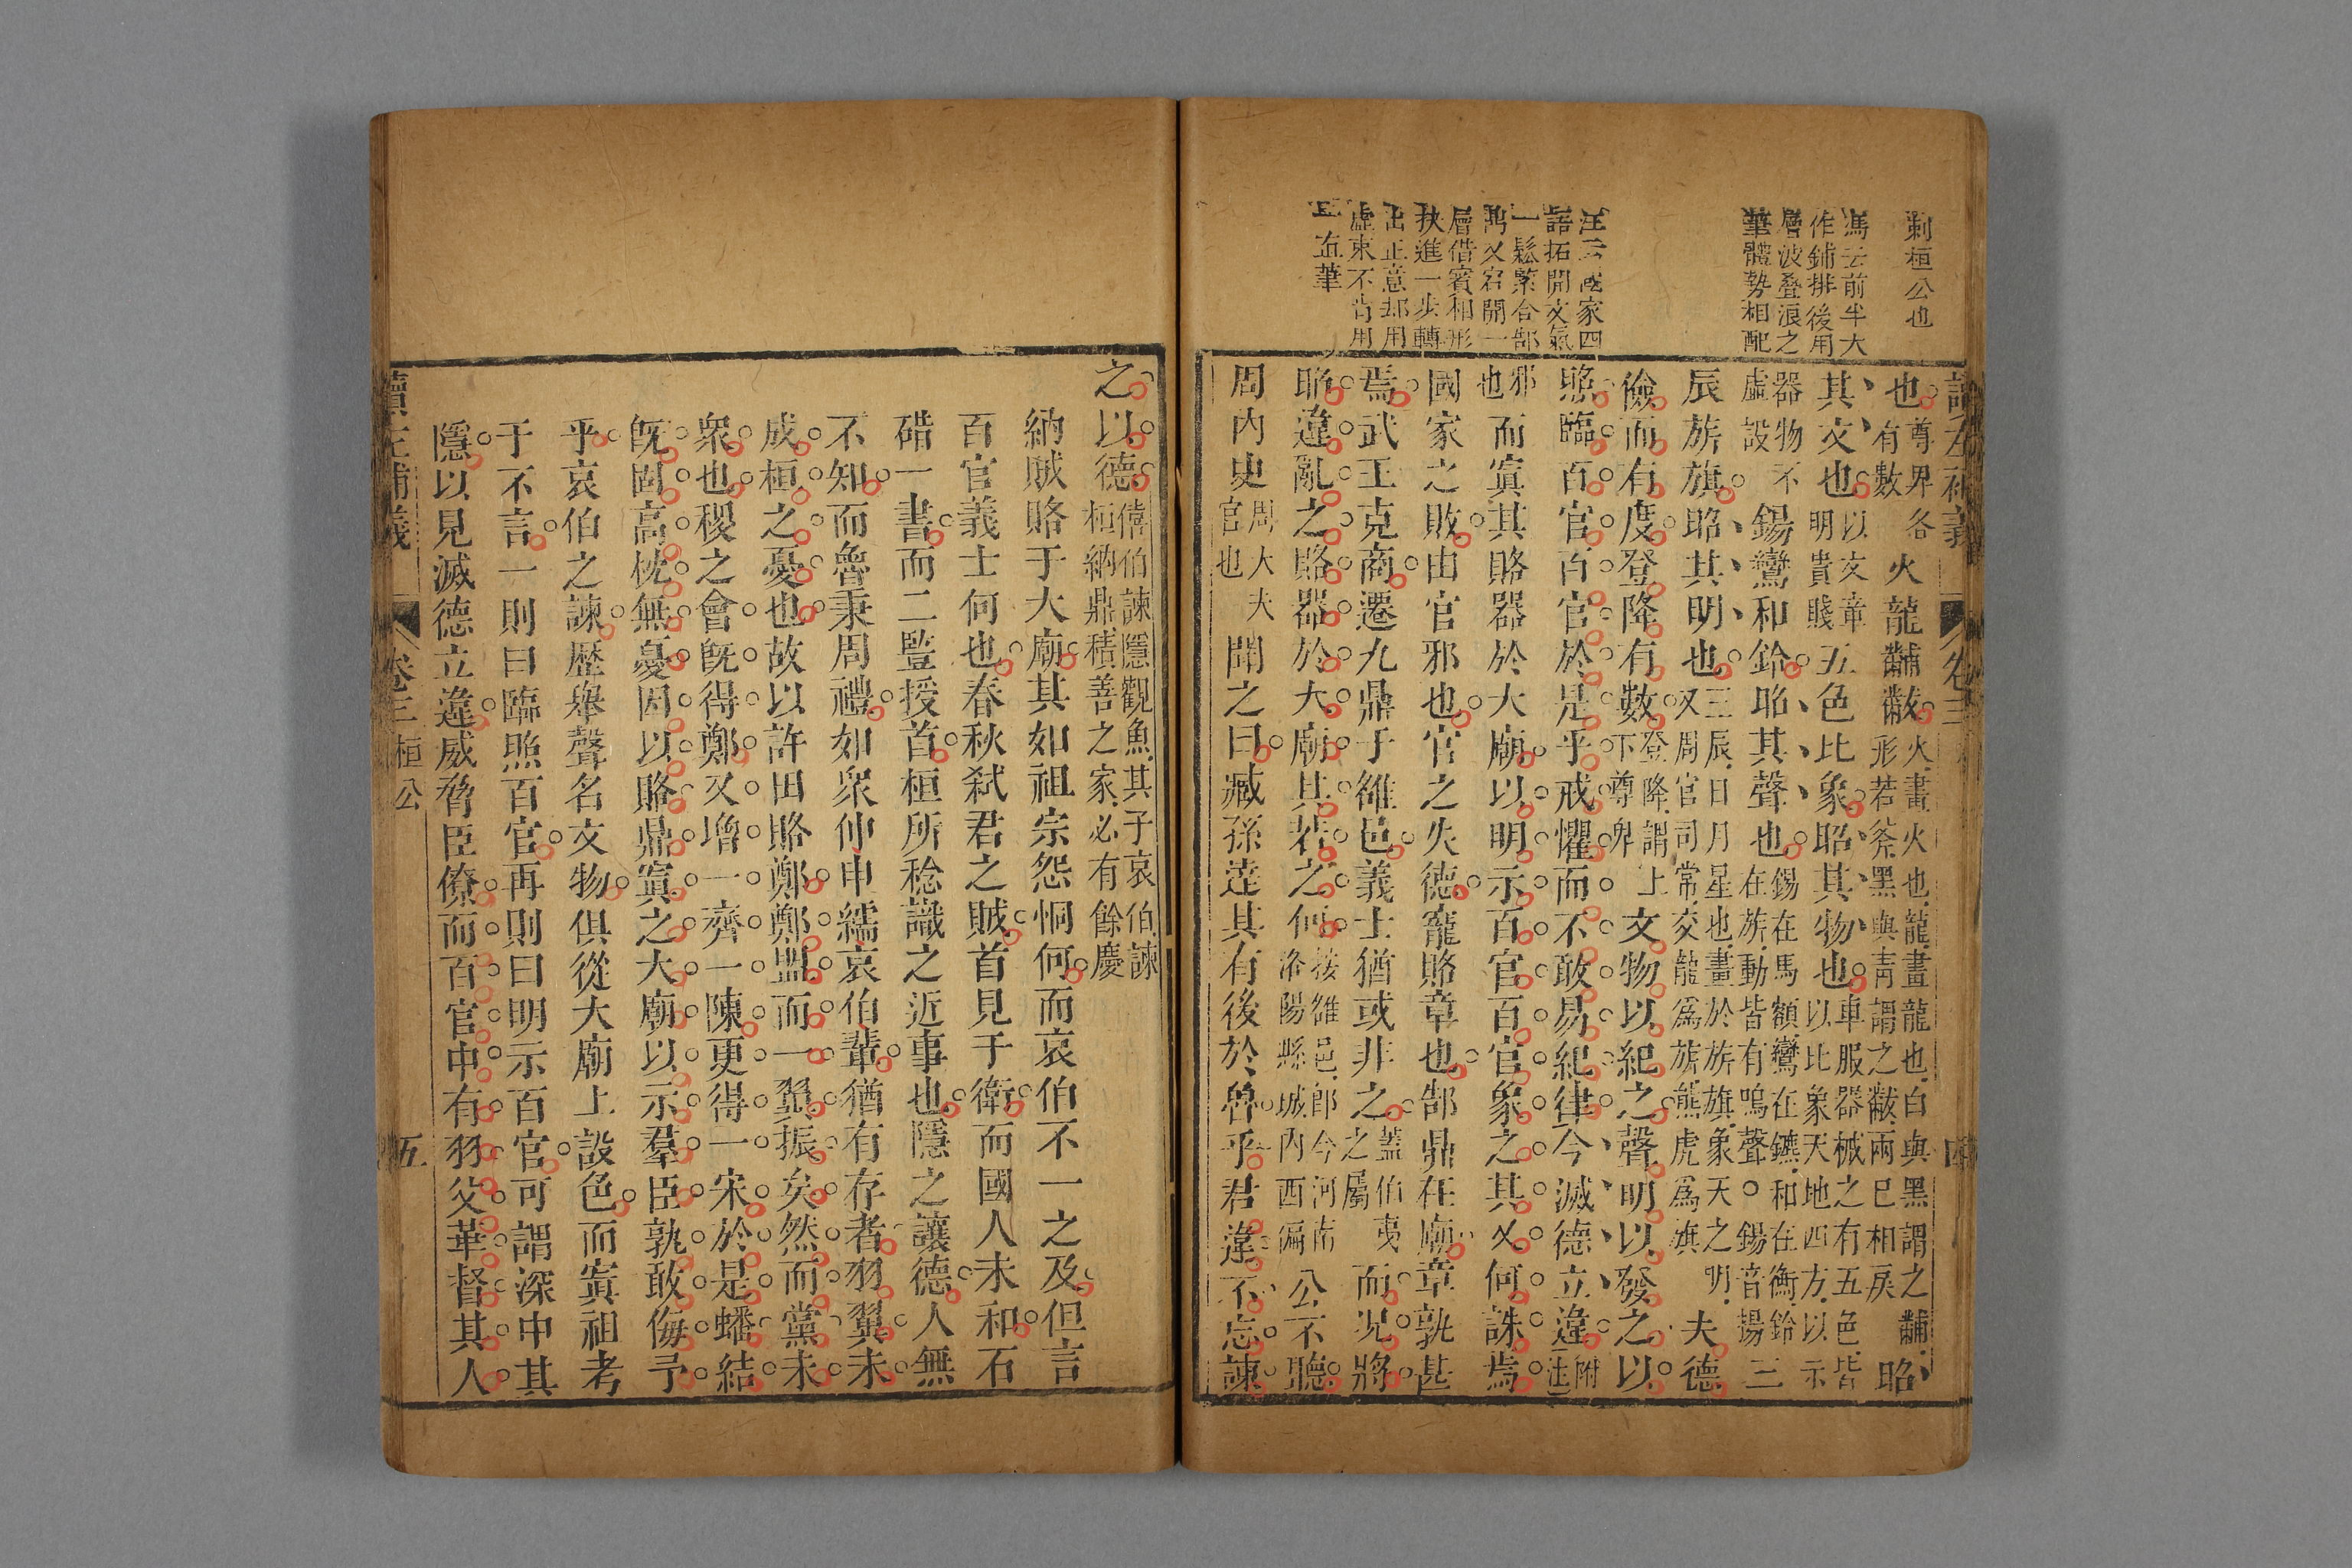 剌桓公也
馮云前半大
作鋪排後用
層波叠浪之
筆體勢相配
汪云國家四
語拓開文氣
一鬆緊合郜
鼎又宕開一
層借賓相形
挾進一步轉
出正意却用
虚束不肯用
直筆
讀左補義 卷三 四
也尊卑各有數火龍黼黻火畫火也龍畫龍也白與黑謂之黼形若斧黑與青謂之黻兩巳相戾昭
其文也以文章明貴賤五色比象昭其物也車服器械之有五色皆以比象天地四方以示
器物不虛設鍚鸞和鈴昭其聲也鍚在馬額鸞在鑣和在衡鈴在旂動皆有鳴聲○鍚音揚三
辰旂旗昭其明也三辰日月星也畫於旂旗象天之明又周官司常交龍爲旂熊虎爲旗夫德
儉而有度登降有數登降謂上下尊卑文物以紀之聲明以發之以
照臨百官百官於是乎戒懼而不敢易紀律今滅德立違附註
邪也而寘其賂器於大廟以明示百官百官象之其又何誅焉
國家之敗由官邪也官之失德寵賂章也郜鼎在廟章孰甚
焉武王克商遷九鼎于雒邑義士猶或非之蓋伯夷之屬而况將
昭違亂之賂器於大廟其若之何按雒邑郎今河南洛陽縣城內西偏公不聽
周内史周大夫官也聞之曰臧孫達其有後於魯乎君違不忘諫
之以德僖伯諫隱觀魚其子哀伯諫桓納鼎積善之家必有餘慶
納賊賂于大廟其如祖宗怨恫何而哀伯不一之及但言
百官義士何也春秋弑君之賊首見于衛而國人未和石
碏一書而二豎授首桓所稔識之近事也隱之讓德人無
不知而魯秉周禮如眾仲申繻哀伯輩猶有存者羽翼未
成桓之憂也故以許田賂鄭鄭盟而一翼振矣然而黨未
衆也稷之會旣得鄭又增一齊一陳更得一宋於是蟠結
旣固高枕無憂因以賂鼎寘之大廟以示羣臣孰敢侮予
乎哀伯之諫歷舉聲名文物俱從大廟上設色而寘祖考
于不言一則曰臨照百官再則曰明示百官可謂深中其
隱以見滅德立違威脅臣僚而百官中有羽父華督其人
讀左補義 卷三 桓公 五